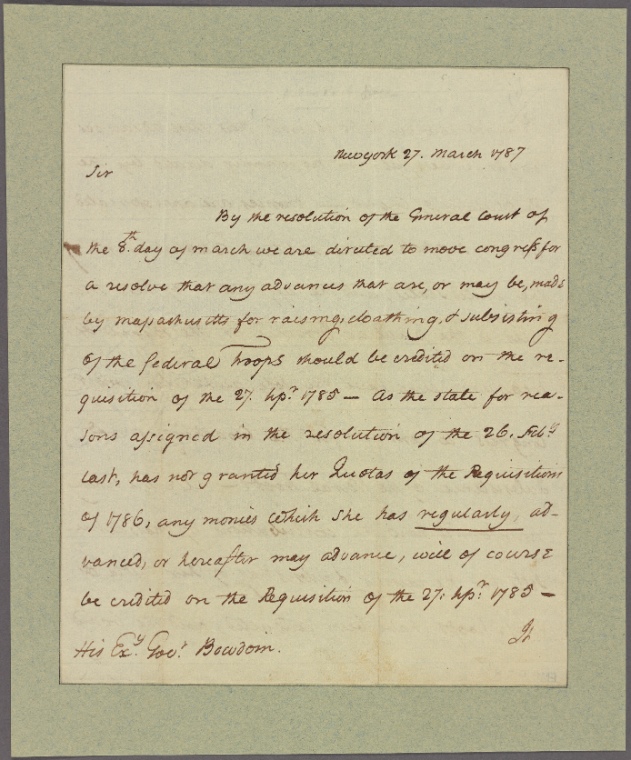 New york 27. March 1787
Sir
By the resolution of the General Court of
the 8.th day of march we are directed to move congress for
a resolve that any advances that are, or may be, made
by massachusetts for raising, cloathing, & subsisting
of the federal troops should be credited on the re-
quisition of the 27. Sepr. 1785 — As the state for rea-
sons assigned in the resolution of the 26. Feby
last, has not granted her Quotas of the Requisitions
of 1786, any monies which she has regularly ad-
vanced, or hereafter may advance, will of course
be credited on the Requisition of the 27. Sepr. 1785 —
It
His Exy. Govr. Bowdoin.